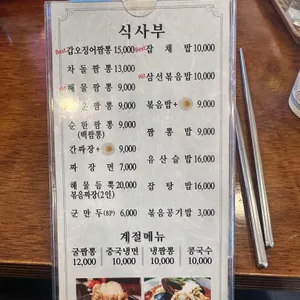 식사부
Best 갑오징어짬뽕 15,000
Best 잡채밥 10,000
차돌짬뽕 13,000
해물짬뽕 9,000
삼선볶음밥 10,000
짬뽕 9,000
볶음밥+ 9,000
순한짬뽕 9,000
(백짬뽕)
짬뽕밥 9,000
간짜장+ 9,000
유산슬밥 16,000
짜장면 7,000
해물듬뿍 20,000
볶음짜장(2인)
잡탕밥 16,000
군만두(8P) 6,000
볶음공기밥 3,000
계절메뉴
굴짬뽕 중국냉면 냉짬뽕 콩국수
12,000 10,000 10,000 10,000